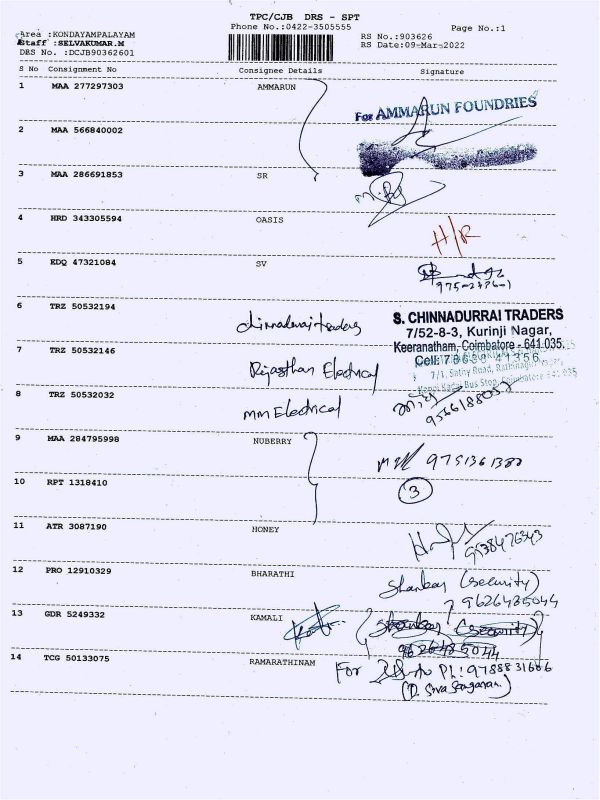 TPC/CJB DRS - SPT
Phone No.:0422-3505555
Page No.:1
Area :KONDAYAMPALAYAM
Staff :SELVAKUMAR.M
DRS No. :DCJB90362601
RS No.:903626
RS Date:09-Mar-2022
S No Consignment No Consignee Details Signature
1 MAA 277297303 AMMARUN
For AMMARUN FOUNDRIES
2 MAA 566840002
3 MAA 286691853 SR
4 HRD 343305594 OASIS
H/R
5 EDQ 47321084 SV
6 TRZ 50532194 chinnadurai traders
S. CHINNADURRAI TRADERS
7/52-8-3, Kurinji Nagar,
Keeranatham, Coimbatore - 641 035.
7 TRZ 50532146 Rajasthan Electrical
Cell: 78630 41356
7/1, Sathy Road,
Bus Stop, Coimbatore
8 TRZ 50532032 MM Electrical
9566188057
9 MAA 284795998 NUBERRY
9751361380
10 RPT 1318410
3
11 ATR 3087190 HONEY
9538476543
12 PRO 12910329 BHARATHI
Shankar (security)
9626485044
13 GDR 5249332 KAMALI
Shankar (security)
9626485044
14 TCG 50133075 RAMARATHINAM
For Ph: 9788831666